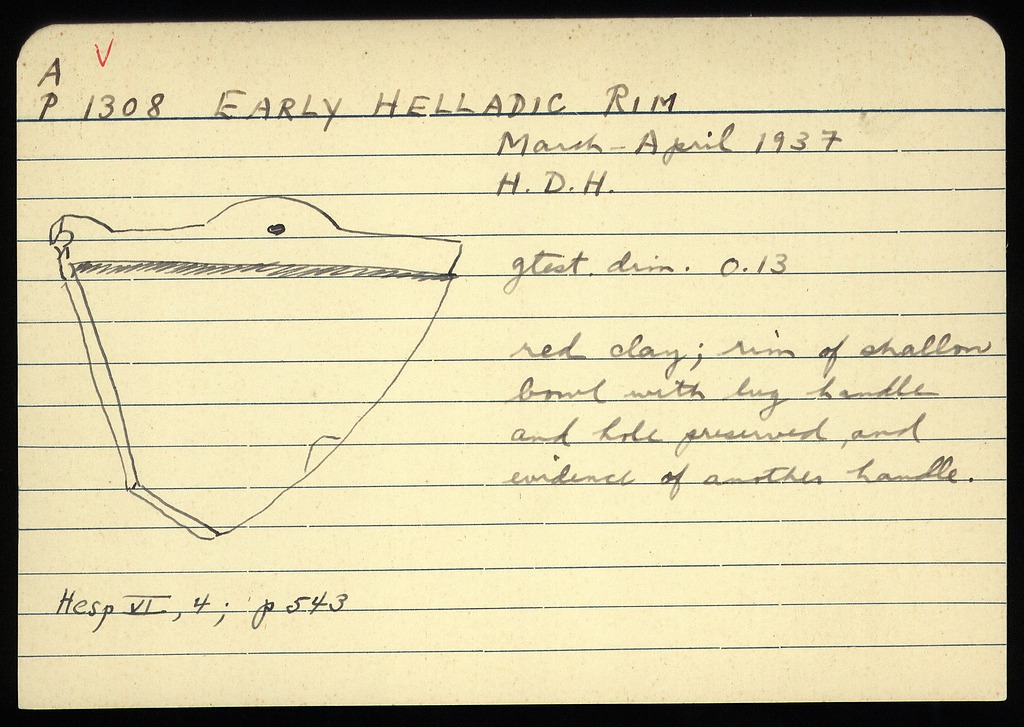 A V
P 1308 EARLY HELLADIC RIM
March - April 1937
H. D. H.
gtest. dim. 0.13
red clay; rim of shallow
bowl with lug handle
and hole preserved and
evidence of another handle.
Hesp VI, 4; p 543